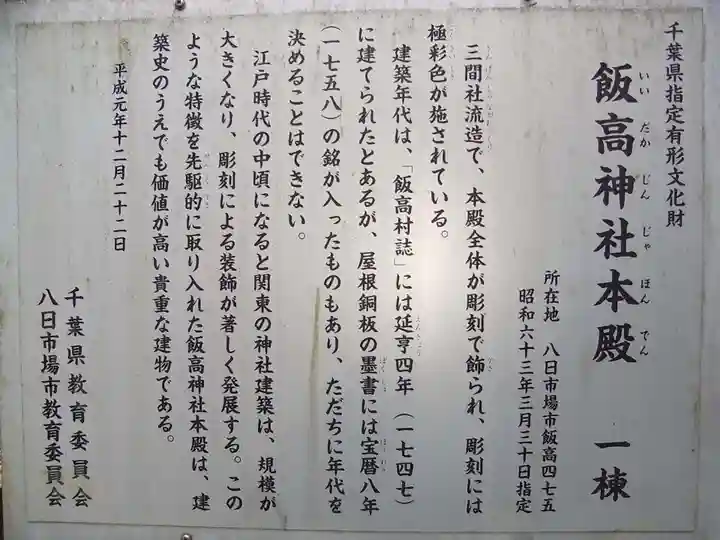 千葉県指定有形文化財
飯高神社本殿　一棟
いい だか じん じゃ ほん でん
所在地　八日市場市飯高四七五
昭和六十三年三月三十日指定
三間社流造で、本殿全体が彫刻で飾られ、彫刻には
極彩色が施されている。
建築年代は、「飯高村誌」には延享四年（一七四七）
に建てられたとあるが、屋根銅板の墨書には宝暦八年
（一七五八）の銘が入ったものもあり、ただちに年代を
決めることはできない。
江戸時代の中頃になると関東の神社建築は、規模が
大きくなり、彫刻による装飾が著しく発展する。この
ような特徴を先駆的に取り入れた飯高神社本殿は、建
築史のうえでも価値が高い貴重な建物である。
平成元年十二月二十二日
千葉県教育委員会
八日市場市教育委員会